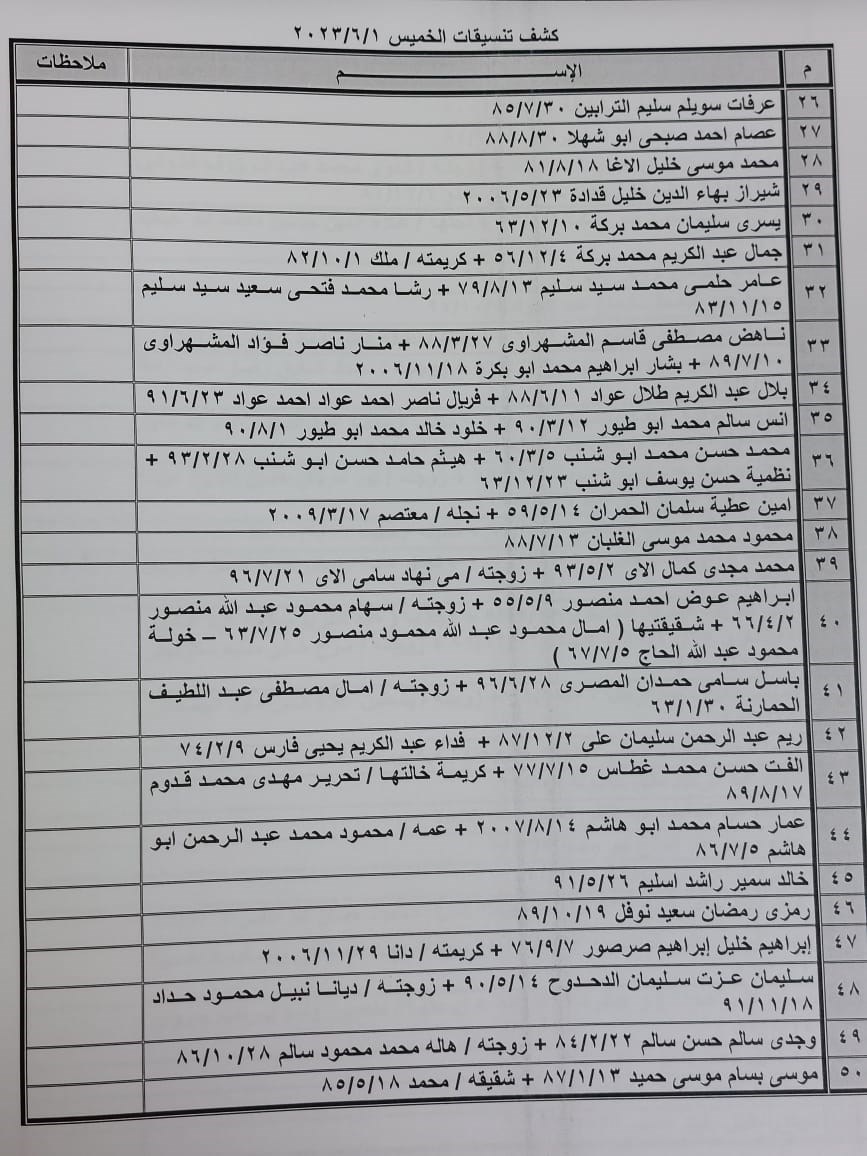 كشف تنسيقات الخميس ٢٠٢٣/٦/١
م الإســـــــــم ملاحظات
٢٦ عرفات سويلم سليم الترابين ٨٥/٧/٣٠
٢٧ عصام احمد صبحى ابو شهلا ٨٨/٨/٣٠
٢٨ محمد موسى خليل الاغا ٨١/٨/١٨
٢٩ شيراز بهاء الدين خليل قدادة ٢٠٠٦/٥/٢٣
٣٠ يسرى سليمان محمد بركة ٦٣/١٢/١٠
٣١ جمال عبد الكريم محمد بركة ٥٦/١٢/٤ + كريمته / ملك ٨٢/١٠/١
٣٢ عامر حلمى محمد سيد سليم ٧٩/٨/١٣ + رشا محمد فتحى سعيد سيد سليم
٨٣/١١/١٥
٣٣ ناهض مصطفى قاسم المشهراوى ٨٨/٣/٢٧ + منار ناصر فؤاد المشهراوى
٨٩/٧/١٠ + بشار ابراهيم محمد ابو بكرة ٢٠٠٦/١١/١٨
٣٤ بلال عبد الكريم طلال عواد ٨٨/٦/١١ + فريال ناصر احمد عواد احمد عواد ٩١/٦/٢٣
٣٥ انس سالم محمد ابو طيور ٩٠/٣/١٢ + خلود خالد محمد ابو طيور ٩٠/٨/١
٣٦ محمد حسن محمد ابو شنب ٦٠/٣/٥ + هيثم حامد حسن ابو شنب ٩٣/٢/٢٨ +
نظمية حسن يوسف ابو شنب ٦٣/١٢/٢٣
٣٧ امين عطية سلمان الحمران ٥٩/٥/١٤ + نجله / معتصم ٢٠٠٩/٣/١٧
٣٨ محمود محمد موسى الغلبان ٨٨/٧/١٣
٣٩ محمد مجدى كمال الاى ٩٣/٥/٢ + زوجته / مى نهاد سامى الاى ٩٦/٧/٢١
٤٠ ابراهيم عوض احمد منصور ٥٥/٥/٩ + زوجته / سهام محمود عبد الله منصور
٦٦/٤/٢ + شقيقتيها ( امال محمود عبد الله محمود منصور ٦٣/٧/٢٥ – خولة
محمود عبد الله الحاج ٦٧/٧/٥ )
٤١ باسل سامى حمدان المصرى ٩٦/٦/٢٨ + زوجته / امال مصطفى عبد اللطيف
الحمارنة ٦٣/١/٣٠
٤٢ ريم عبد الرحمن سليمان على ٨٧/١٢/٢ + فداء عبد الكريم يحيى فارس ٧٤/٢/٩
٤٣ الفت حسن محمد غطاس ٧٧/٧/١٥ + كريمة خالتها / تحرير مهدى محمد قدوم
٨٩/٨/١٧
٤٤ عمار حسام محمد ابو هاشم ٢٠٠٧/٨/١٤ + عمه / محمود محمد عبد الرحمن ابو
هاشم ٨٦/٧/٥
٤٥ خالد سمير راشد اسليم ٩١/٥/٢٦
٤٦ رمزى رمضان سعيد نوفل ٨٩/١٠/١٩
٤٧ إبراهيم خليل إبراهيم صرصور ٧٦/٩/٧ + كريمته / دانا ٢٠٠٦/١١/٢٩
٤٨ سليمان عزت سليمان الدحدوح ٩٠/٥/١٤ + زوجته / ديانا نبيل محمود حداد
٩١/١١/١٨
٤٩ وجدى سالم حسن سالم ٨٤/٢/٢٢ + زوجته / هاله محمد محمود سالم ٨٦/١٠/٢٨
٥٠ موسى بسام موسى حميد ٨٧/١/١٣ + شقيقه / محمد ٨٥/٥/١٨